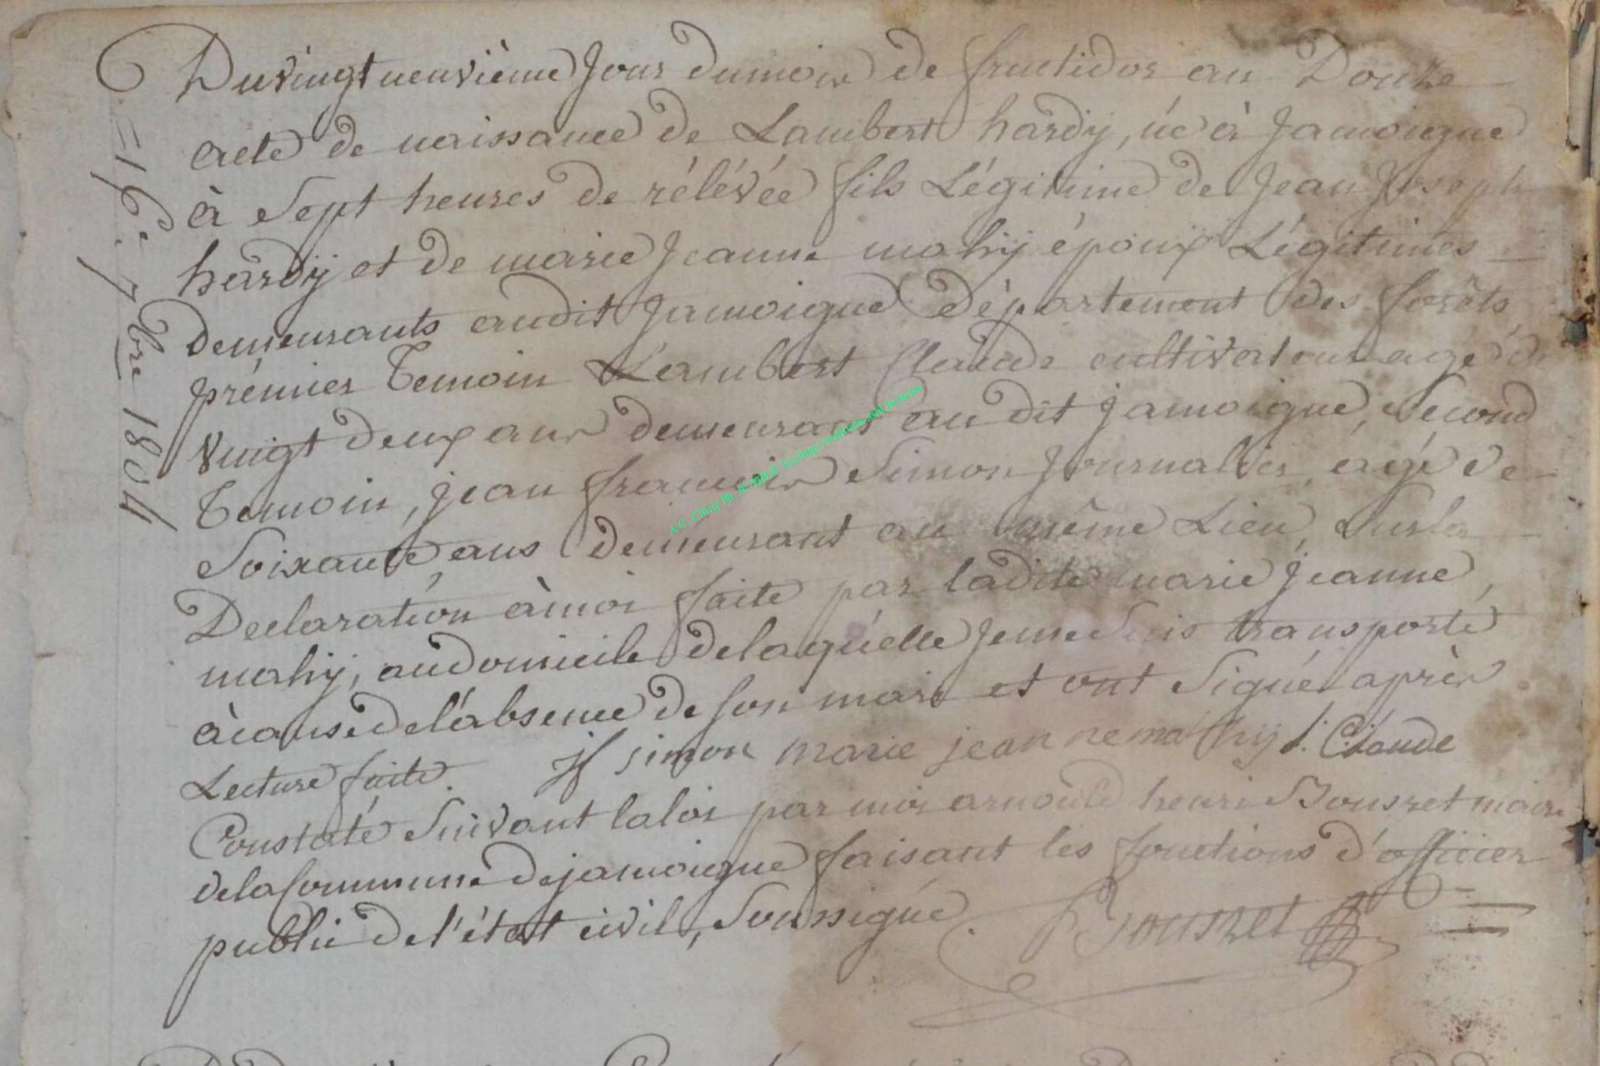 Du vingt neuvième Jour du mois de fructidor an Douze
acte de naissance de Lambert hardÿ, né à Jamoigne
à Sept heures de rélévée fils Légitime de Jean Joseph
hardÿ et de marie Jeanne mahÿ époux Légitimes
demeurants audit Jamoigne département des forêts
prémier Temoin Lambert Claude cultivateur agé de
vingt deux ans demeurant au dit jamoigne, Second
Temoin, jean francois Simon Journalier, agé de
Soixante ans demeurant au même Lieu, Sur la
Declaration à moi faite par ladite marie Jeanne
mahÿ, au domicile de laquelle Je me Suis transporté
à cause de l'absence de Son mari et ont Signé après
Lecture faite. jf simon marie jeanne mahÿ l. Claude
Constaté Suivant la loi par moi arnould henri Bousret maire
de la Commune de jamoigne faisant les fonctions d'officier
public de l'état civil, Soussigné. Bousret
= 16e. 7bre 1804